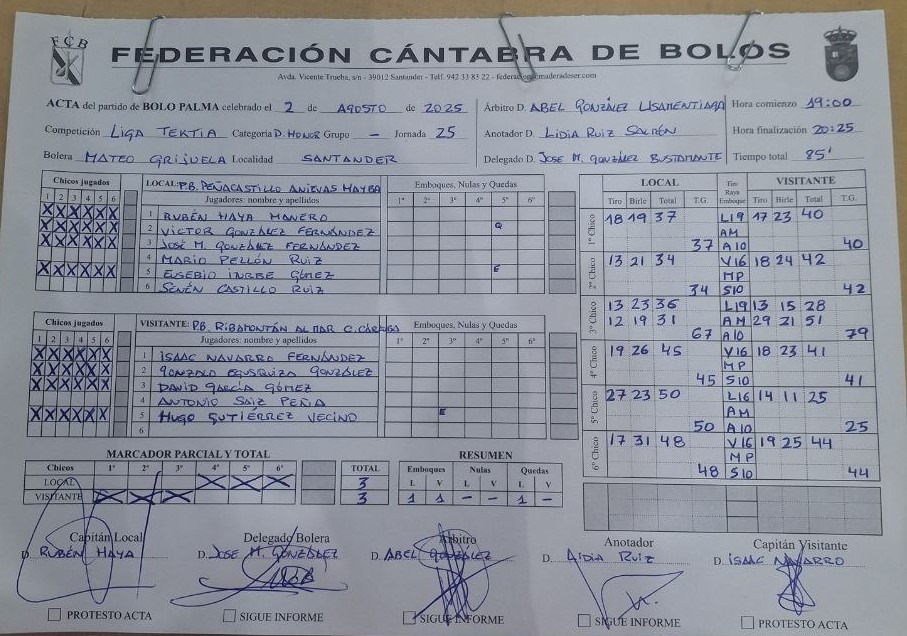 FCB
FEDERACIÓN CÁNTABRA DE BOLOS
Avda. Vicente Trueba, s/n - 39012 Santander - Telf. 942 33 83 22 - federacion@maderadeser.com
ACTA del partido de BOLO PALMA celebrado el 2 de AGOSTO de 2025 Árbitro D. ABEL GONZÁLEZ LISAMENTIAGA Hora comienzo 19:00
Competición LIGA TEKTIA Categoria D. HONOR Grupo - Jornada 25 Anotador D. LIDIA RUIZ SALMÓN Hora finalización 20:25
Bolera MATEO GRIJUELA Localidad SANTANDER Delegado D. JOSE M. GONZÁLEZ BUSTAMANTE Tiempo total 85'
Chicos jugados LOCAL: P.B. PEÑACASTILLO ANIEVAS MAYBA Emboques, Nulas y Quedas
1 2 3 4 5 6 Jugadores: nombre y apellidos 1º 2º 3º 4º 5º 6º
X X X X X X 1 RUBÉN HAYA MONERO
X X X X X X 2 VICTOR GONZÁLEZ FERNÁNDEZ Q
X X X X X X 3 JOSÉ M. GONZÁLEZ FERNÁNDEZ
4 MARIO PELLÓN RUIZ
X X X X X X 5 EUSEBIO INRBE GÓMEZ E
6 SENÉN CASTILLO RUIZ
Chicos jugados VISITANTE: P.B. RIBAMONTÁN AL MAR C. Emboques, Nulas y Quedas
1 2 3 4 5 6 Jugadores: nombre y apellidos 1º 2º 3º 4º 5º 6º
X X X X X X 1 ISAAC NAVARRO FERNÁNDEZ
X X X X X X 2 GONZALO EGUSQUIZA GONZÁLEZ
X X X X X X 3 DAVID GARCÍA GÓMEZ
4 ANTONIO SAIZ PEÑA
X X X X X X 5 HUGO GUTIÉRREZ VECINO E
6
LOCAL Tiro Raya Emboque VISITANTE
Tiro Birle Total T.G. Tiro Birle Total T.G.
1º Chico 18 19 37 L19 17 23 40
AM
37 A10 40
2º Chico 13 21 34 V16 18 24 42
MP
34 S10 42
3º Chico 13 23 36 L19 13 15 28
12 19 31 AM 29 21 51
67 A10 79
4º Chico 19 26 45 V16 18 23 41
MP
45 S10 41
5º Chico 27 23 50 L16 14 11 25
AM
50 A10 25
6º Chico 17 31 48 V16 19 25 44
MP
48 S10 44
MARCADOR PARCIAL Y TOTAL RESUMEN
Chicos 1º 2º 3º 4º 5º 6º TOTAL Emboques Nulas Quedas
LOCAL X X X 3 L V L V L V
VISITANTE X X X 3 1 1 - - 1 -
Capitán Local Delegado Bolera Árbitro Anotador Capitán Visitante
D. RUBÉN HAYA D. JOSE M. GONZÁLEZ D. ABEL GONZÁLEZ D. LIDIA RUIZ D. ISAAC NAVARRO
PROTESTO ACTA SIGUE INFORME SIGUE INFORME SIGUE INFORME PROTESTO ACTA